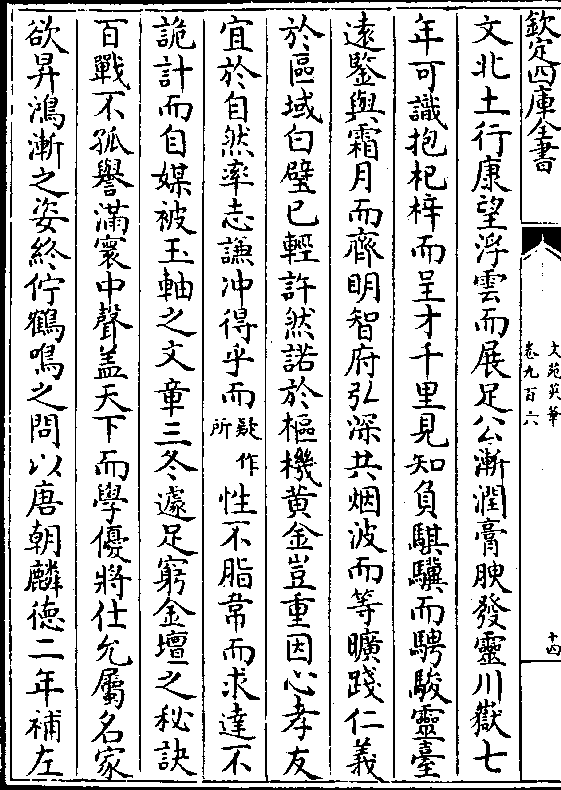 欽定四庫全書
文苑英華
卷九百六
十四
文北土行康望浮雲而展足公漸潤膏腴發靈川嶽七
年可識抱杞梓而呈才千里見知負騏驥而騁駿靈臺
遠鑒與霜月而齊明智府弘深共烟波而等曠踐仁義
於區域白璧已輕許然諾於樞機黄金豈重因心孝友
宜於自然率志謙冲得乎而疑作所性不脂韋而求達不
詭計而自媒被玉軸之文章三冬遽足窮金壇之秘訣
百戰不孤譽滿寰中聲盖天下而學優將仕允屬名家
欲昇鴻漸之姿終佇鶴鳴之問以唐朝麟德二年補左